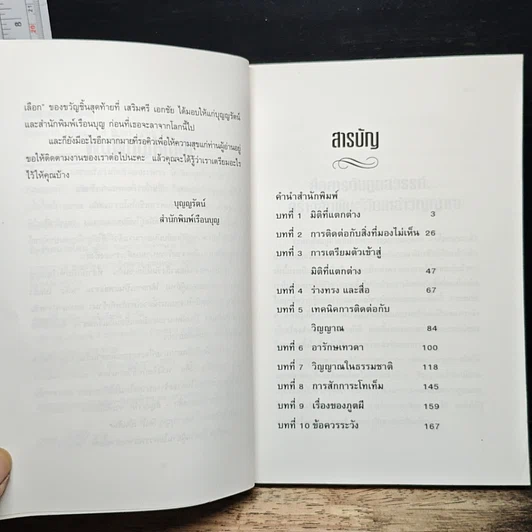 เลือก" ของขวัญชิ้นสุดท้ายที่ เสริมศรี เอกชัย ได้มอบให้แก่บุญญรัตน์
และสำนักพิมพ์เรือนบุญ ก่อนที่เธอจะลาจากโลกนี้ไป
และก็ยังมีอะไรอีกมากมายที่รอคิวเพื่อให้ความสุขแก่ท่านผู้อ่านอยู่
ขอให้ติดตามงานของเราต่อไปนะคะ แล้วคุณจะได้รู้ว่าเราเตรียมอะไร
ไว้ให้คุณบ้าง
บุญญรัตน์
สำนักพิมพ์เรือนบุญ
สารบัญ
คำนำสำนักพิมพ์
บทที่ 1 มิติที่แตกต่าง 3
บทที่ 2 การติดต่อกับสิ่งที่มองไม่เห็น 26
บทที่ 3 การเตรียมตัวเข้าสู่
มิติที่แตกต่าง 47
บทที่ 4 ร่างทรง และสื่อ 67
บทที่ 5 เทคนิคการติดต่อกับ
วิญญาณ 84
บทที่ 6 อารักษเทวดา 100
บทที่ 7 วิญญาณในธรรมชาติ 118
บทที่ 8 การสักการะโทเท็ม 145
บทที่ 9 เรื่องของภูตผี 159
บทที่ 10 ข้อควรระวัง 167